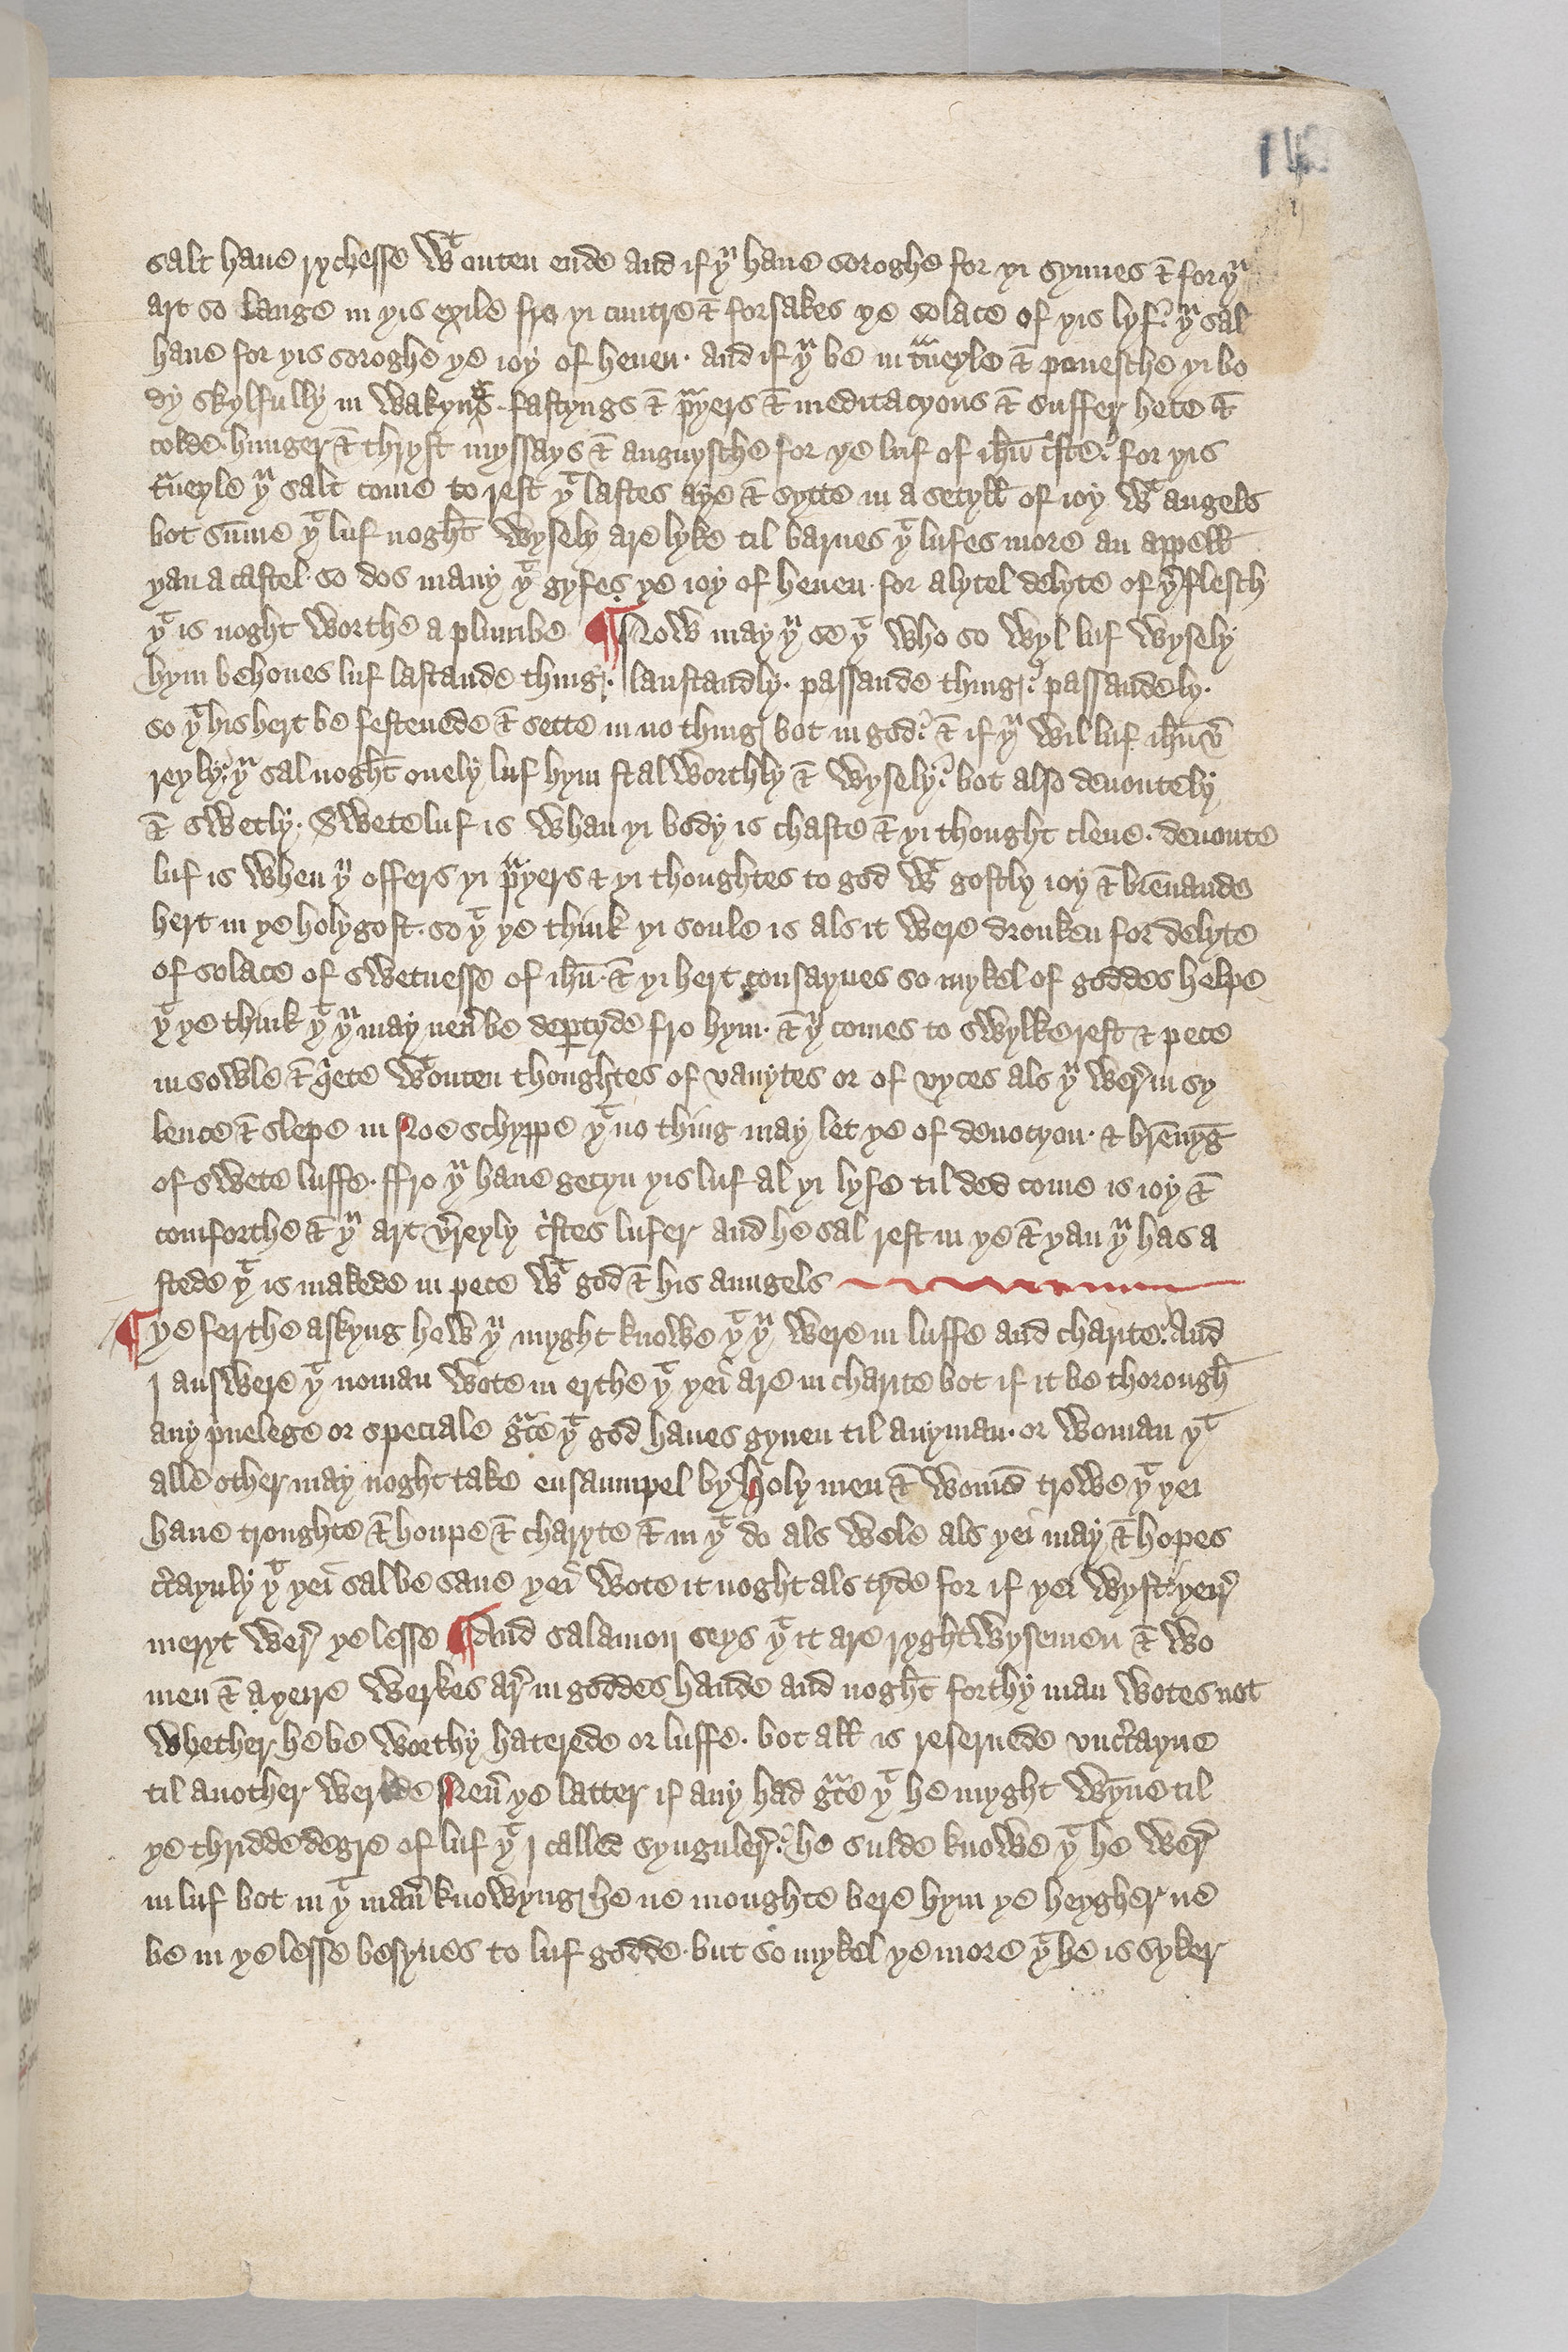 salt haue rychesse wᵗouten ende and if yᵘ haue soroghe for yi synnes & for yᵘ
art so lange in yis exile fro yi cuntre & forsakes ye solace of yis lyf. yᵘ sal
haue for yis soroghe ye ioy of heuen. and if yᵘ be in tᵃueyle & punesche yi bo
dy skylfully in wakyngs. fastyngs & pᵃyers & meditacyons & suffer hete &
colde. hunger & thryst myssays & anguysche for ye luf of ihū cͥste. for yis
tᵃueyle yᵘ salt come to rest yᵗ lastes aye & sytte in a setyll of ioy wᵗ angels
bot sūme yᵗ luf noght wysely are lyke til barnes yᵗ lufes more an appell
yan a castel. so dos many yᵗ gyfes ye ioy of heuen. for a lytel delyte of yͬ flesch
yᵗ is noght worthe a plumbe ¶ Now may yᵘ se yᵗ who so wyl luf wysely
hym behoues luf lastande thing. laustandly. passande thing. passandely.
so yᵗ his hert be festenede & sette in no thing bot in god. & if yᵘ wil luf ihū v̄
reyly. yᵘ sal noght onely luf hym stalworthly & wysely. bot also deuoutely
& swetly. Swete luf is whan yi body is chaste & yi thought clene. deuoute
luf is when yᵘ offers yi pᵃyers & yi thoughtes to god wᵗ gostly ioy & brēnande
hert in ye holy gost. so yᵗ ye think yi soule is als it were dronken for delyte
of solace of swetnesse of ihū. & yi hert consaynes so mykel of goddes helpe
yᵗ ye think yᵗ yᵘ may neu̓ be dep̱tyde fro hym. & yᵘ comes to swylke rest & pece
in sowle & qͥete wᵗouten thoughtes of vanytes or of vyces als yᵘ wer̓ in sy
lence & slepe in Noe schyppe yᵗ no thing may let ye of deuocyon. & brēnyg̅
of swete luffe. ffro yᵘ haue getyn yis luf al yi lyfe til ded come is ioy &
comforthe & yᵘ art v̓reyly cͥstes lufer and he sal rest in ye & yan yᵘ has a
stede yᵗ is makede in pece wᵗ god & his aungels
¶ ye ferthe askyng hew yᵘ myght knowe yᵗ yᵘ were in luffe and charite. And
I answere yᵗ noman wote in erthe yᵗ yei are in charite bot if it be thorough
any pͥuelege or speciale gᵃce yᵗ god haues gyuen til any man. or woman yᵗ
alle other may noght take ensaumpel by holy men & womē trowe yᵗ yei
haue troughte & houpe & charyte & in yᵗ do als wele als yei may & hopes
c̓taynly yᵗ yei sal be saue yei wote it noght als tyde for if yei wyst yeir̓
meryt wer̓ ye lesse ¶ And salamon seys yᵗ it are ryghtwysemen & wo
men & a yeire werkes ar̓ in goddes hande and noght forthy man wotes not
whether he be worthy haterede or luffe. bot all is reseruede unc̓tayne
til another werlde Neu̓ ye latter if any had gᵃce yᵗ he myght wyne til
ye thridde degre of luf yᵗ I called synguler̓. he sulde knowe yᵗ he wer̓
in luf bot in yᵗ man̓ knowyng he ne moughte bere hym ye heygher ne
be in ye lesse besynes to luf godde. but so mykel ye more yᵗ he is syker